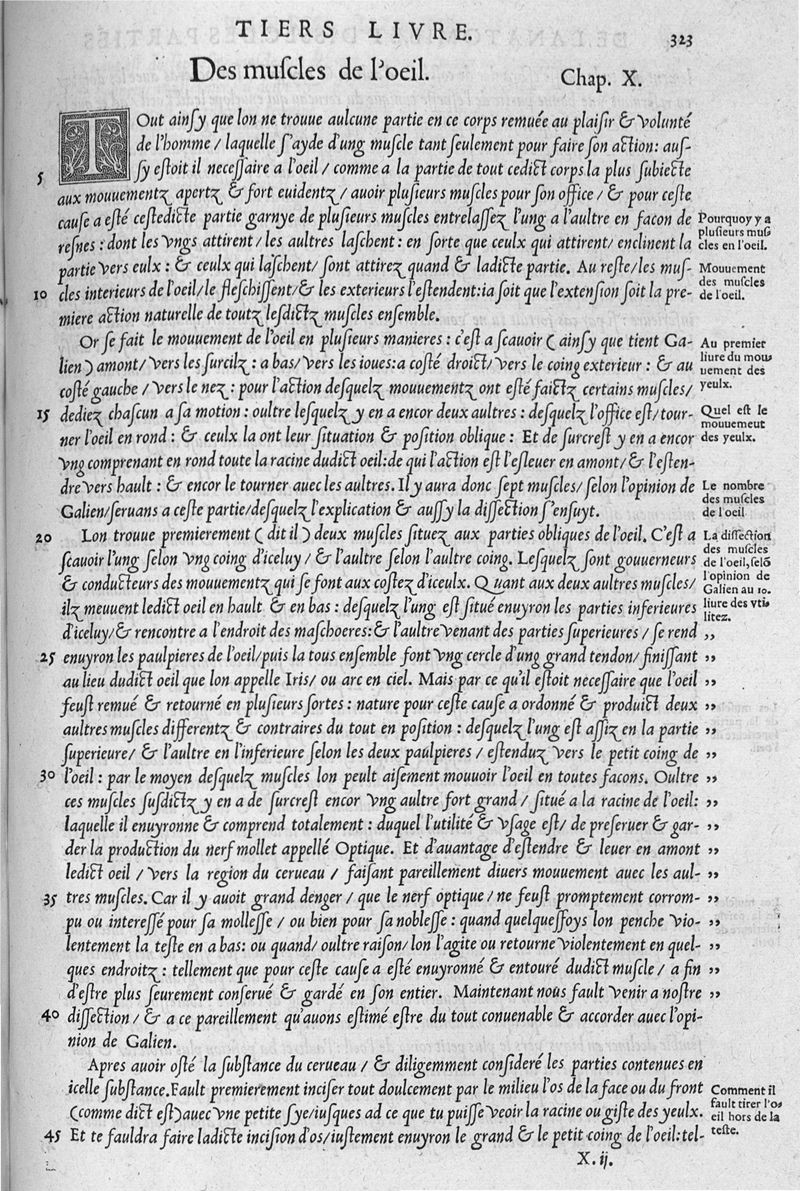 TIERS LIVRE.
323
Des muſcles de l'oeil.
Chap. X.
TOut ainſy que lon ne trouue aulcune partie en ce corps remuée au plaiſir & volunté
de l'homme / laquelle ſ'ayde d'ung muſcle tant ſeulement pour faire ſon action: auſ-
ſy eſtoit il neceſſaire a l'oeil / comme a la partie de tout cedict corps la plus ſubiecte
5
aux mouuementz apertz & fort euidentz / auoir pluſieurs muſcles pour ſon office / & pour ceſte
cauſe a eſté ceſtedicte partie garnye de pluſieurs muſcles entrelaſſez l'ung a l'aultre en facon de
reſnes : dont les vngs attirent / les aultres laſchent : en ſorte que ceulx qui attirent / enclinent la
partie vers eulx : & ceulx qui laſchent / ſont attirez quand & ladicte partie. Au reſte / les muſ-
10 cles interieurs de l'oeil / le fleſchiſſent / & les exterieurs l'eſtendent: ia ſoit que l'extenſion ſoit la pre-
miere action naturelle de toutz leſdictz muſcles enſemble.
Pourquoy y a
pluſieurs muſ
cles en l'oeil.
Mouuement
des muſcles
de l'oeil.
Or ſe fait le mouuement de l'oeil en pluſieurs manieres : c'eſt a ſcauoir ( ainſy que tient Ga-
lien ) amont / vers les ſurcilz : a bas / vers les ioues: a coſté droict / vers le coing exterieur : & au
coſté gauche / vers le nez : pour l'action deſquelz mouuementz ont eſté faictz certains muſcles /
15 dediez chaſcun a ſa motion : oultre leſquelz y en a encor deux aultres : deſquelz l'office eſt / tour-
ner l'oeil en rond : & ceulx la ont leur ſituation & poſition oblique : Et de ſurcreſt y en a encor
vng comprenant en rond toute la racine dudict oeil: de qui l'action eſt l'eſleuer en amont / & l'eſten-
dre vers hault : & encor le tourner auec les aultres. Il y aura donc ſept muſcles / ſelon l'opinion de
Galien / ſeruans a ceſte partie / deſquelz l'explication & auſſy la diſſection ſ'enſuyt.
Au premier
liure du mou
uement des
yeulx.
Quel eſt le
mouuemeut
des yeulx.
Le nombre
des muſcles
de l'oeil
20 Lon trouue premierement ( dit il ) deux muſcles ſituez aux parties obliques de l'oeil. C'eſt a
ſcauoir l'ung ſelon vng coing d'iceluy / & l'aultre ſelon l'aultre coing. Leſquelz ſont gouuerneurs
& conducteurs des mouuementz qui ſe font aux coſtez d'iceulx. Quant aux deux aultres muſcles /
ilz meuuent ledict oeil en hault & en bas : deſquelz l'ung eſt ſitué enuyron les parties inferieures
d'iceluy / & rencontre a l'endroit des maſchoeres: & l'aultre venant des parties ſuperieures / ſe rend ,,
25 enuyron les paulpieres de l'oeil / puis la tous enſemble font vng cercle d'ung grand tendon / finiſſant ,,
au lieu dudict oeil que lon appelle Iris / ou arc en ciel. Mais par ce qu'il eſtoit neceſſaire que l'oeil ,,
feuſt remué & retourné en pluſieurs ſortes : nature pour ceſte cauſe a ordonné & produict deux ,,
aultres muſcles differentz & contraires du tout en poſition : deſquelz l'ung eſt aſſiz en la partie ,,
ſuperieure / & l'aultre en l'inferieure ſelon les deux paulpieres / eſtenduz vers le petit coing de ,,
30 l'oeil : par le moyen deſquelz muſcles lon peult aiſement mouuoir l'oeil en toutes facons. Oultre ,,
ces muſcles ſuſdictz y en a de ſurcreſt encor vng aultre fort grand / ſitué a la racine de l'oeil: ,,
laquelle il enuyronne & comprend totalement : duquel l'utilité & vſage eſt / de preſeruer & gar- ,,
der la production du nerf mollet appellé Optique. Et d'auantage d'eſtendre & leuer en amont ,,
ledict oeil / vers la region du cerueau / faiſant pareillement diuers mouuement auec les aul- ,,
35 tres muſcles. Car il y auoit grand denger / que le nerf optique / ne feuſt promptement corrom- ,,
pu ou intereſſé pour ſa molleſſe / ou bien pour ſa nobleſſe : quand quelqueſſoys lon penche vio- ,,
lentement la teſte en a bas: ou quand / oultre raiſon / lon l'agite ou retourne violentement en quel- ,,
ques endroitz : tellement que pour ceſte cauſe a eſté enuyronné & entouré dudict muſcle / a fin ,,
d'eſtre plus ſeurement conſerué & gardé en ſon entier. Maintenant nous fault venir a noſtre ,,
40 diſſection / & a ce pareillement qu'auons eſtimé eſtre du tout conuenable & accorder auec l'opi-
nion de Galien.
La diſſection
des muſcles
de l'oeil, ſelõ
l'opinion de
Galien au 10.
liure des vti-
litez.
Apres auoir oſté la ſubſtance du cerueau / & diligemment conſideré les parties contenues en
icelle ſubſtance. Fault premierement inciſer tout doulcement par le milieu l'os de la face ou du front
(comme dict eſt) auec vne petite ſye / iuſques ad ce que tu puiſſe veoir la racine ou giſte des yeulx.
45 Et te fauldra faire ladicte inciſion d'os / iuſtement enuyron le grand & le petit coing de l'oeil: tel-
Comment il
fault tirer l'o-
eil hors de la
teſte.
X. ij.